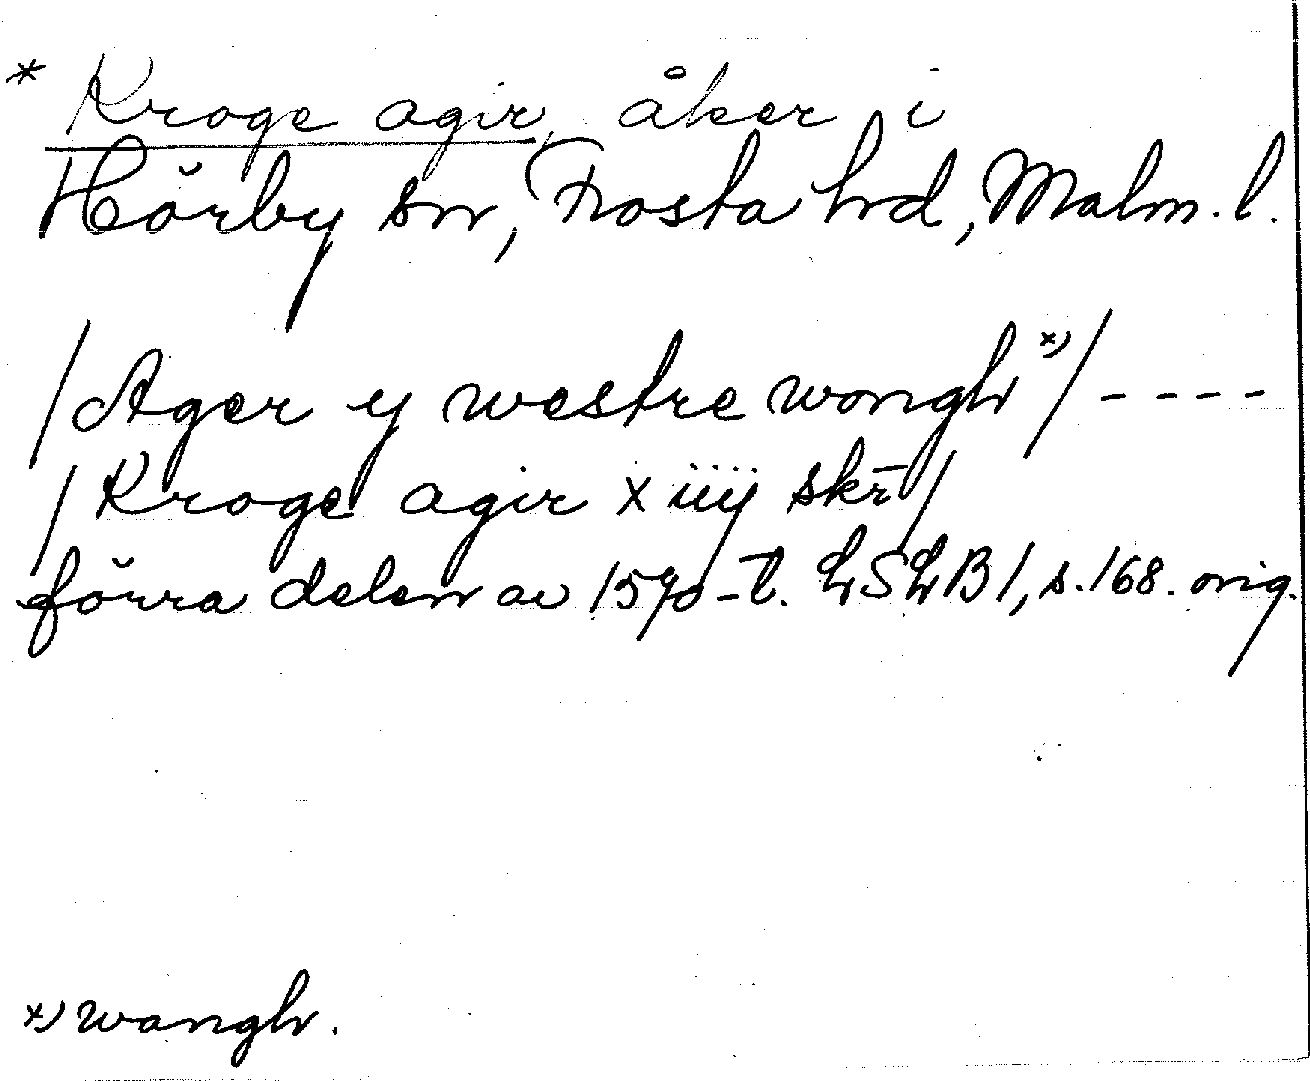 * Kroge agir, åker i
Hörby sn, Frosta hd, Malm. l.
/Ager y westre wongh x)/ - - - -
/Kroge agir x iiij skr̄/
förra delen av 1570-t. LSLB 1, s. 168. orig.
x) wangh.